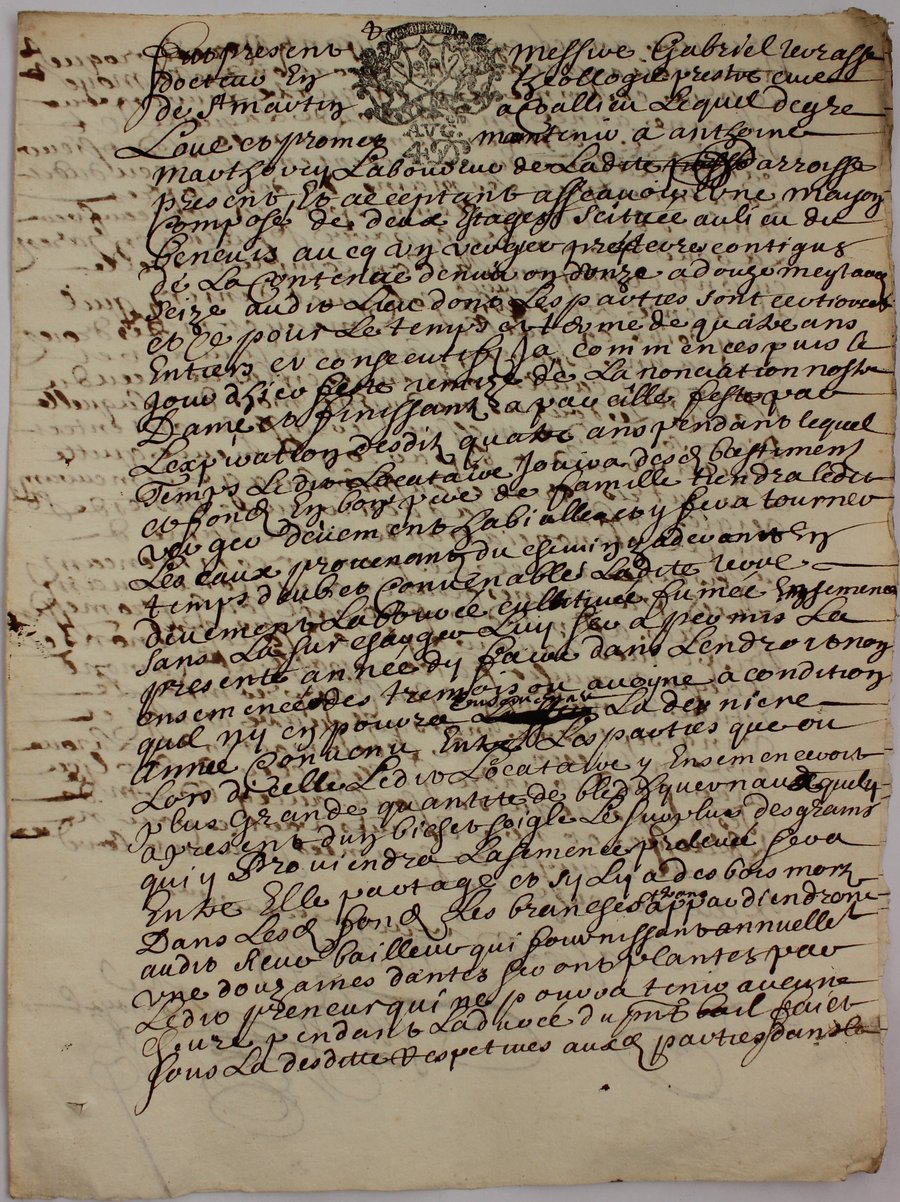 Fut present messire Gabriel
docteur En theollogie prestre cure
de St martin a Vallieu Lequel de gre
Loue et promet mantenir a anthoine
AVG.
Laboureur de Ladite parroisse
present Et acceptant assavoir Une mayson
Compose de deux Estages scituée au lieu du
un verger contigus
de La Contenue denuiron donze a douze
size audit Lieu dont Les parties sont
et Ce pour Le temps et terme de quatre ans
Entiers et consecutifs Ja commences puis le
Jour d'hier feste de La nonciation nostre
Dame et finissant a pareille feste par
Lexpiration desdits quatre ans pendant lequel
Temps Ledit Locataire Jouira desd bastiment
et fond En bon pere de famille tiendra ledit
verger deuement et y fera tourner
Les eaux provenant du chemin y adevant En
temps deubet Convenable Ladite terre
deuement Labourée cultiuée fumée Ensemencée
sans La surcharger Luy sera permis La
presente année dy faire dans Lendroit non
ensemencé des tremois ou avoyne a condition
quil ny en pourra La derniere
année Convenu Entre Les parties que ou
Lors dicelle Ledit Locataire y Ensemenceroit
plus Grande quantité de bled quil y
a present dun bichet soigle Le surplus des grains
qui y Proviendra La semence prelevée sera
Entre Elle partagé et sy Ly a des bois mortz
Dans Lesd fond Les branches appartiendront
audit sieur bailleur qui fournissant annuellet
Une douzaines dantes seront plantes par
Ledit preneur qui ne pourra tenir aucune
cheure pendant La durée du pnt bail faict
sous La desditte Respetives auxd parties dans la